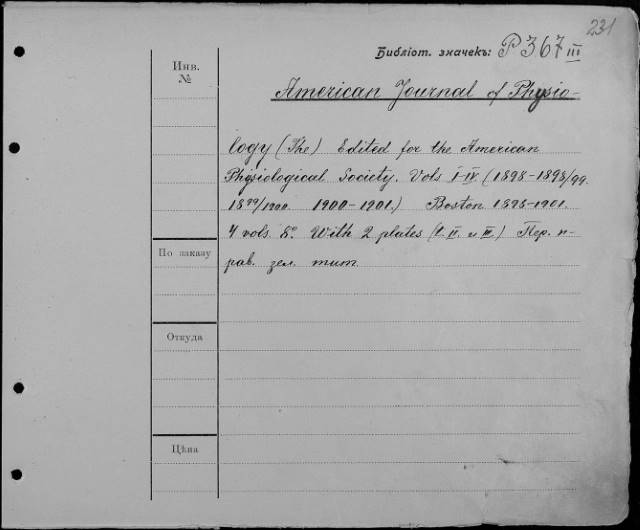 231
Библіот. значекъ: P 367 III
Инв.
№
American Journal of Physio-
logy (The) Edited for the American
Physiological Society. Vols I-IV (1898-1898/99.
1899/1900. 1900-1901.) Boston 1898-1901.
4 vols. 8°. With 2 plates (I. II. и III) Пер. п-
рав. зел. тит.
По заказу
Откуда
Цѣна